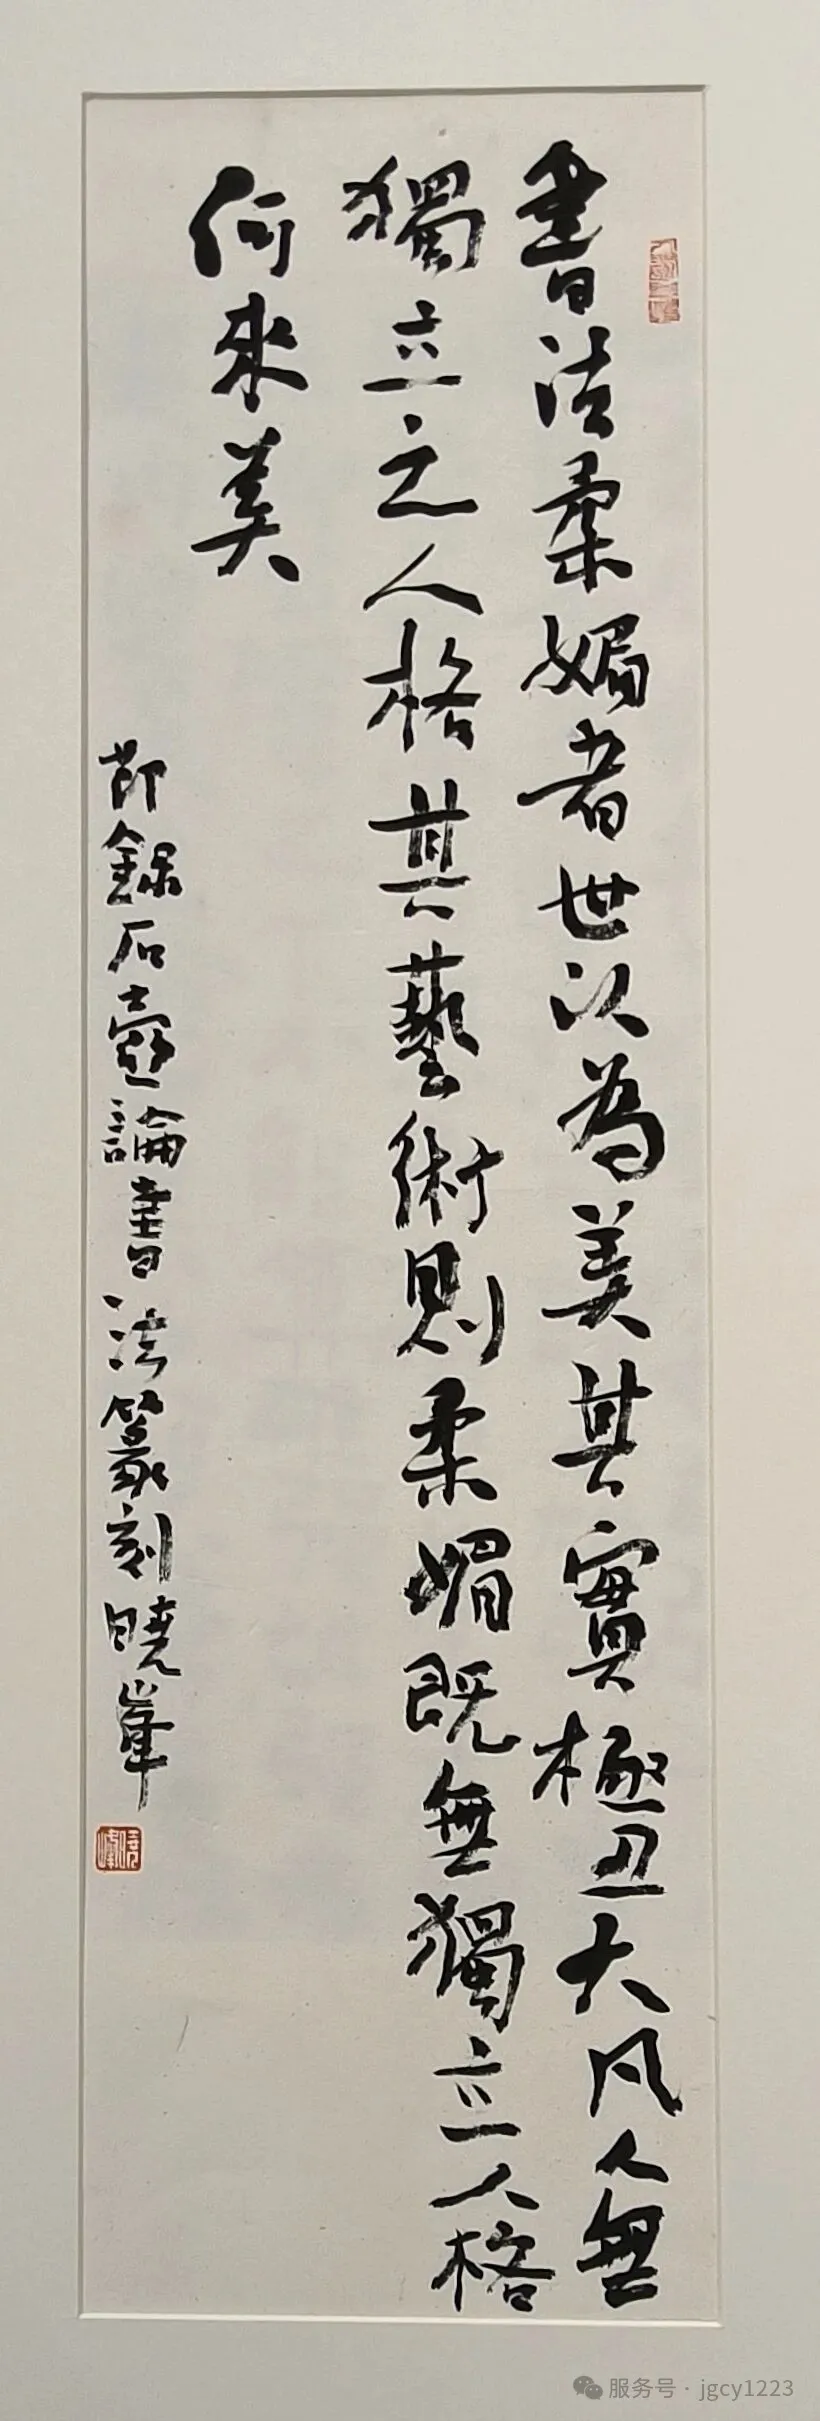 書法柔媚者世以為美其實極丑大凡人無
獨立之人格其藝術則柔媚既無獨立人格
何來美
節錄石壺論書法篆刻曉峯
服务号 · jgcy1223